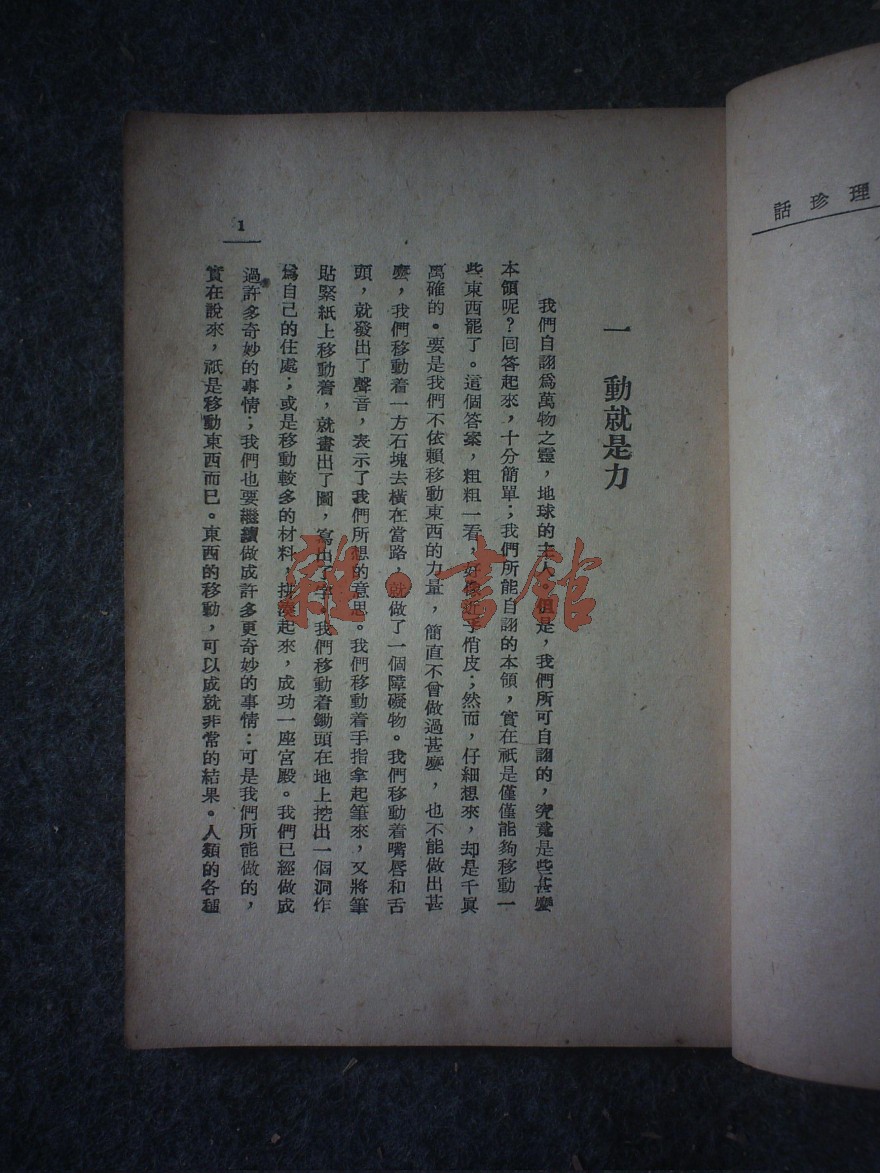 理珍話
1
一 動就是力
我們自詡爲萬物之靈，地球的主人，但是，我們所可自詡的，究竟是些甚麼
本領呢？回答起來，十分簡單；我們所能自詡的本領，實在祇是僅僅能夠移動一
些東西罷了。這個答案，粗粗一看，好像近乎俏皮；然而，仔細想來，却是千眞
萬確的。要是我們不依賴移動東西的力量，簡直不曾做過甚麼，也不能做出甚
麼，我們移動着一方石塊去橫在當路，就做了一個障礙物。我們移動着嘴唇和舌
頭，就發出了聲音，表示了我們所想的意思。我們移動着手指拿起筆來，又將筆
貼緊紙上移動着，就畫出了圖，寫出了字。我們移動着鋤頭在地上挖出一個洞作
爲自己的住處；或是移動較多的材料，拼湊起來，成功一座宮殿。我們已經做成
過許多奇妙的事情；我們也要繼續做成許多更奇妙的事情：可是我們所能做的，
實在說來，祇是移動東西而已。東西的移動，可以成就非常的結果。人類的各種
雜·書館